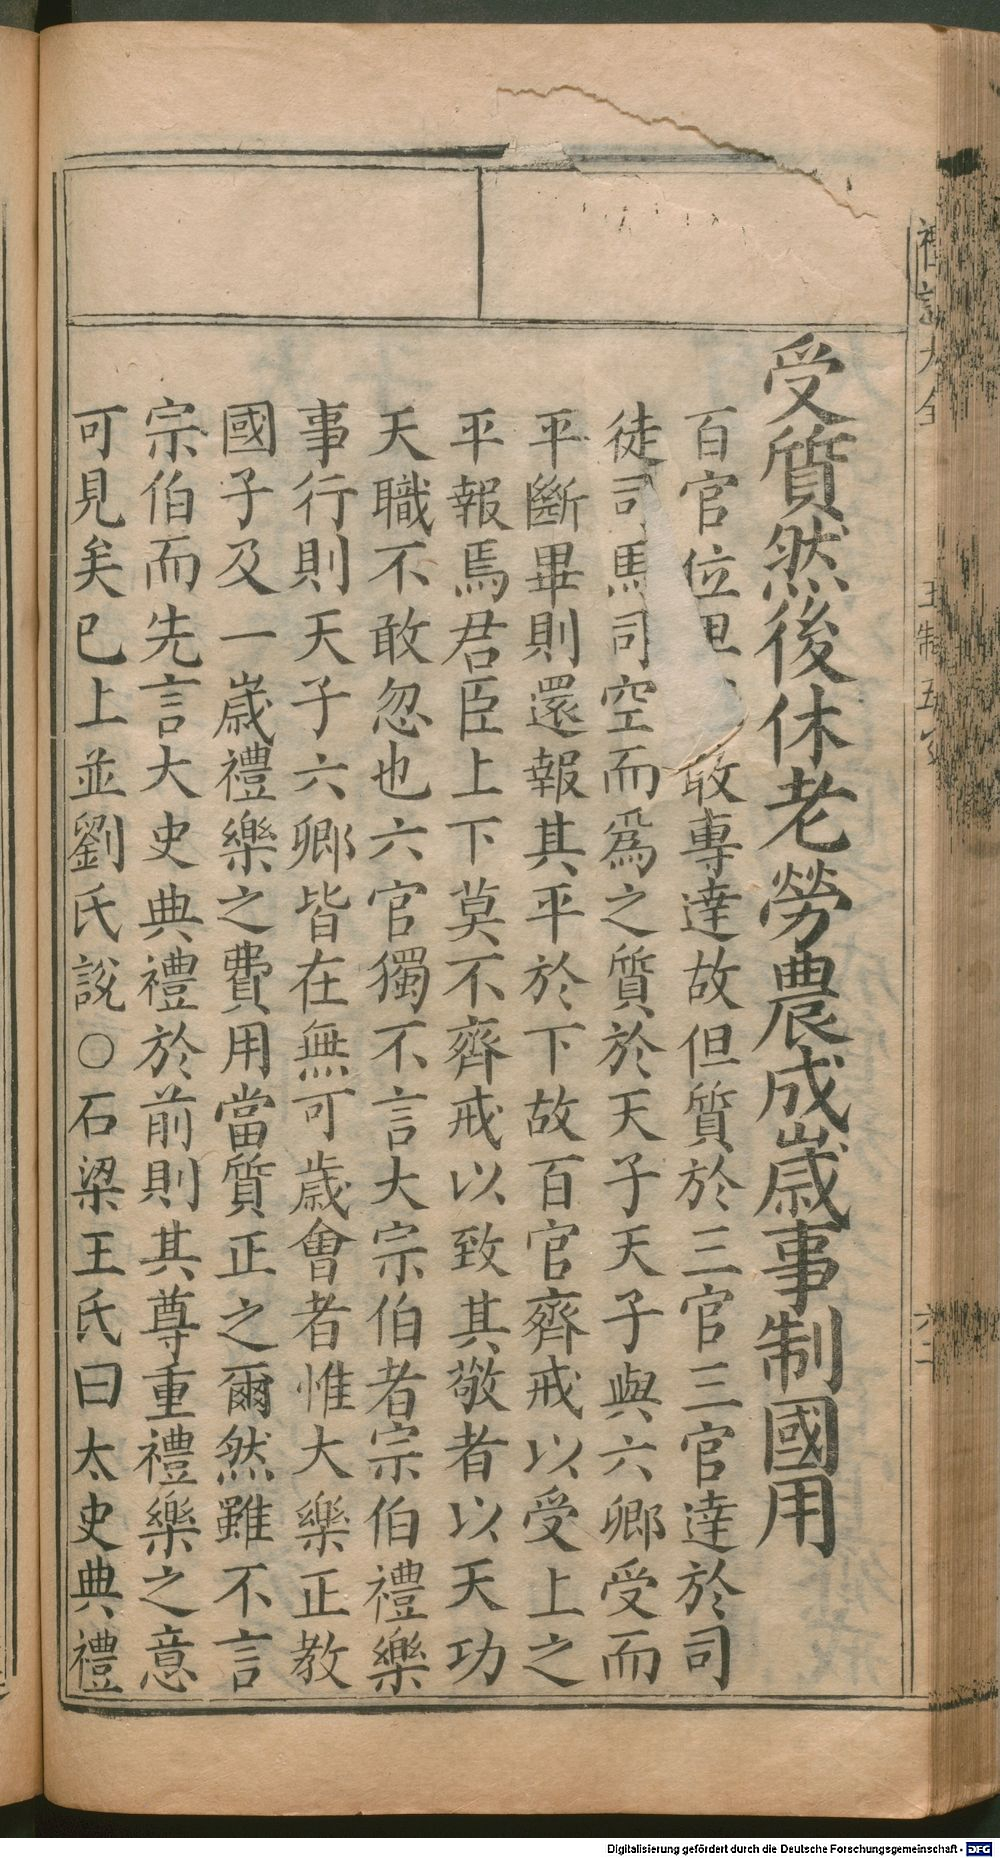 受質然後休老勞農成歲事制國用
百官位 敢專達故但質於三官三官達於司
徒司馬司空而爲之質於天子天子與六卿受而
平斷畢則還報其平於下故百官齊戒以受上之
平報焉君臣上下莫不齊戒以致其敬者以天功
天職不敢忽也六官獨不言大宗伯者宗伯禮樂
事行則天子六卿皆在無可歲會者惟大樂正教
國子及一歲禮樂之費用當質正之爾然雖不言
宗伯而先言大史典禮於前則其尊重禮樂之意
可見矣已上並劉氏說○石梁王氏曰太史典禮
Digitalisierung gefördert durch die Deutsche Forschungsgemeinschaft - DFG